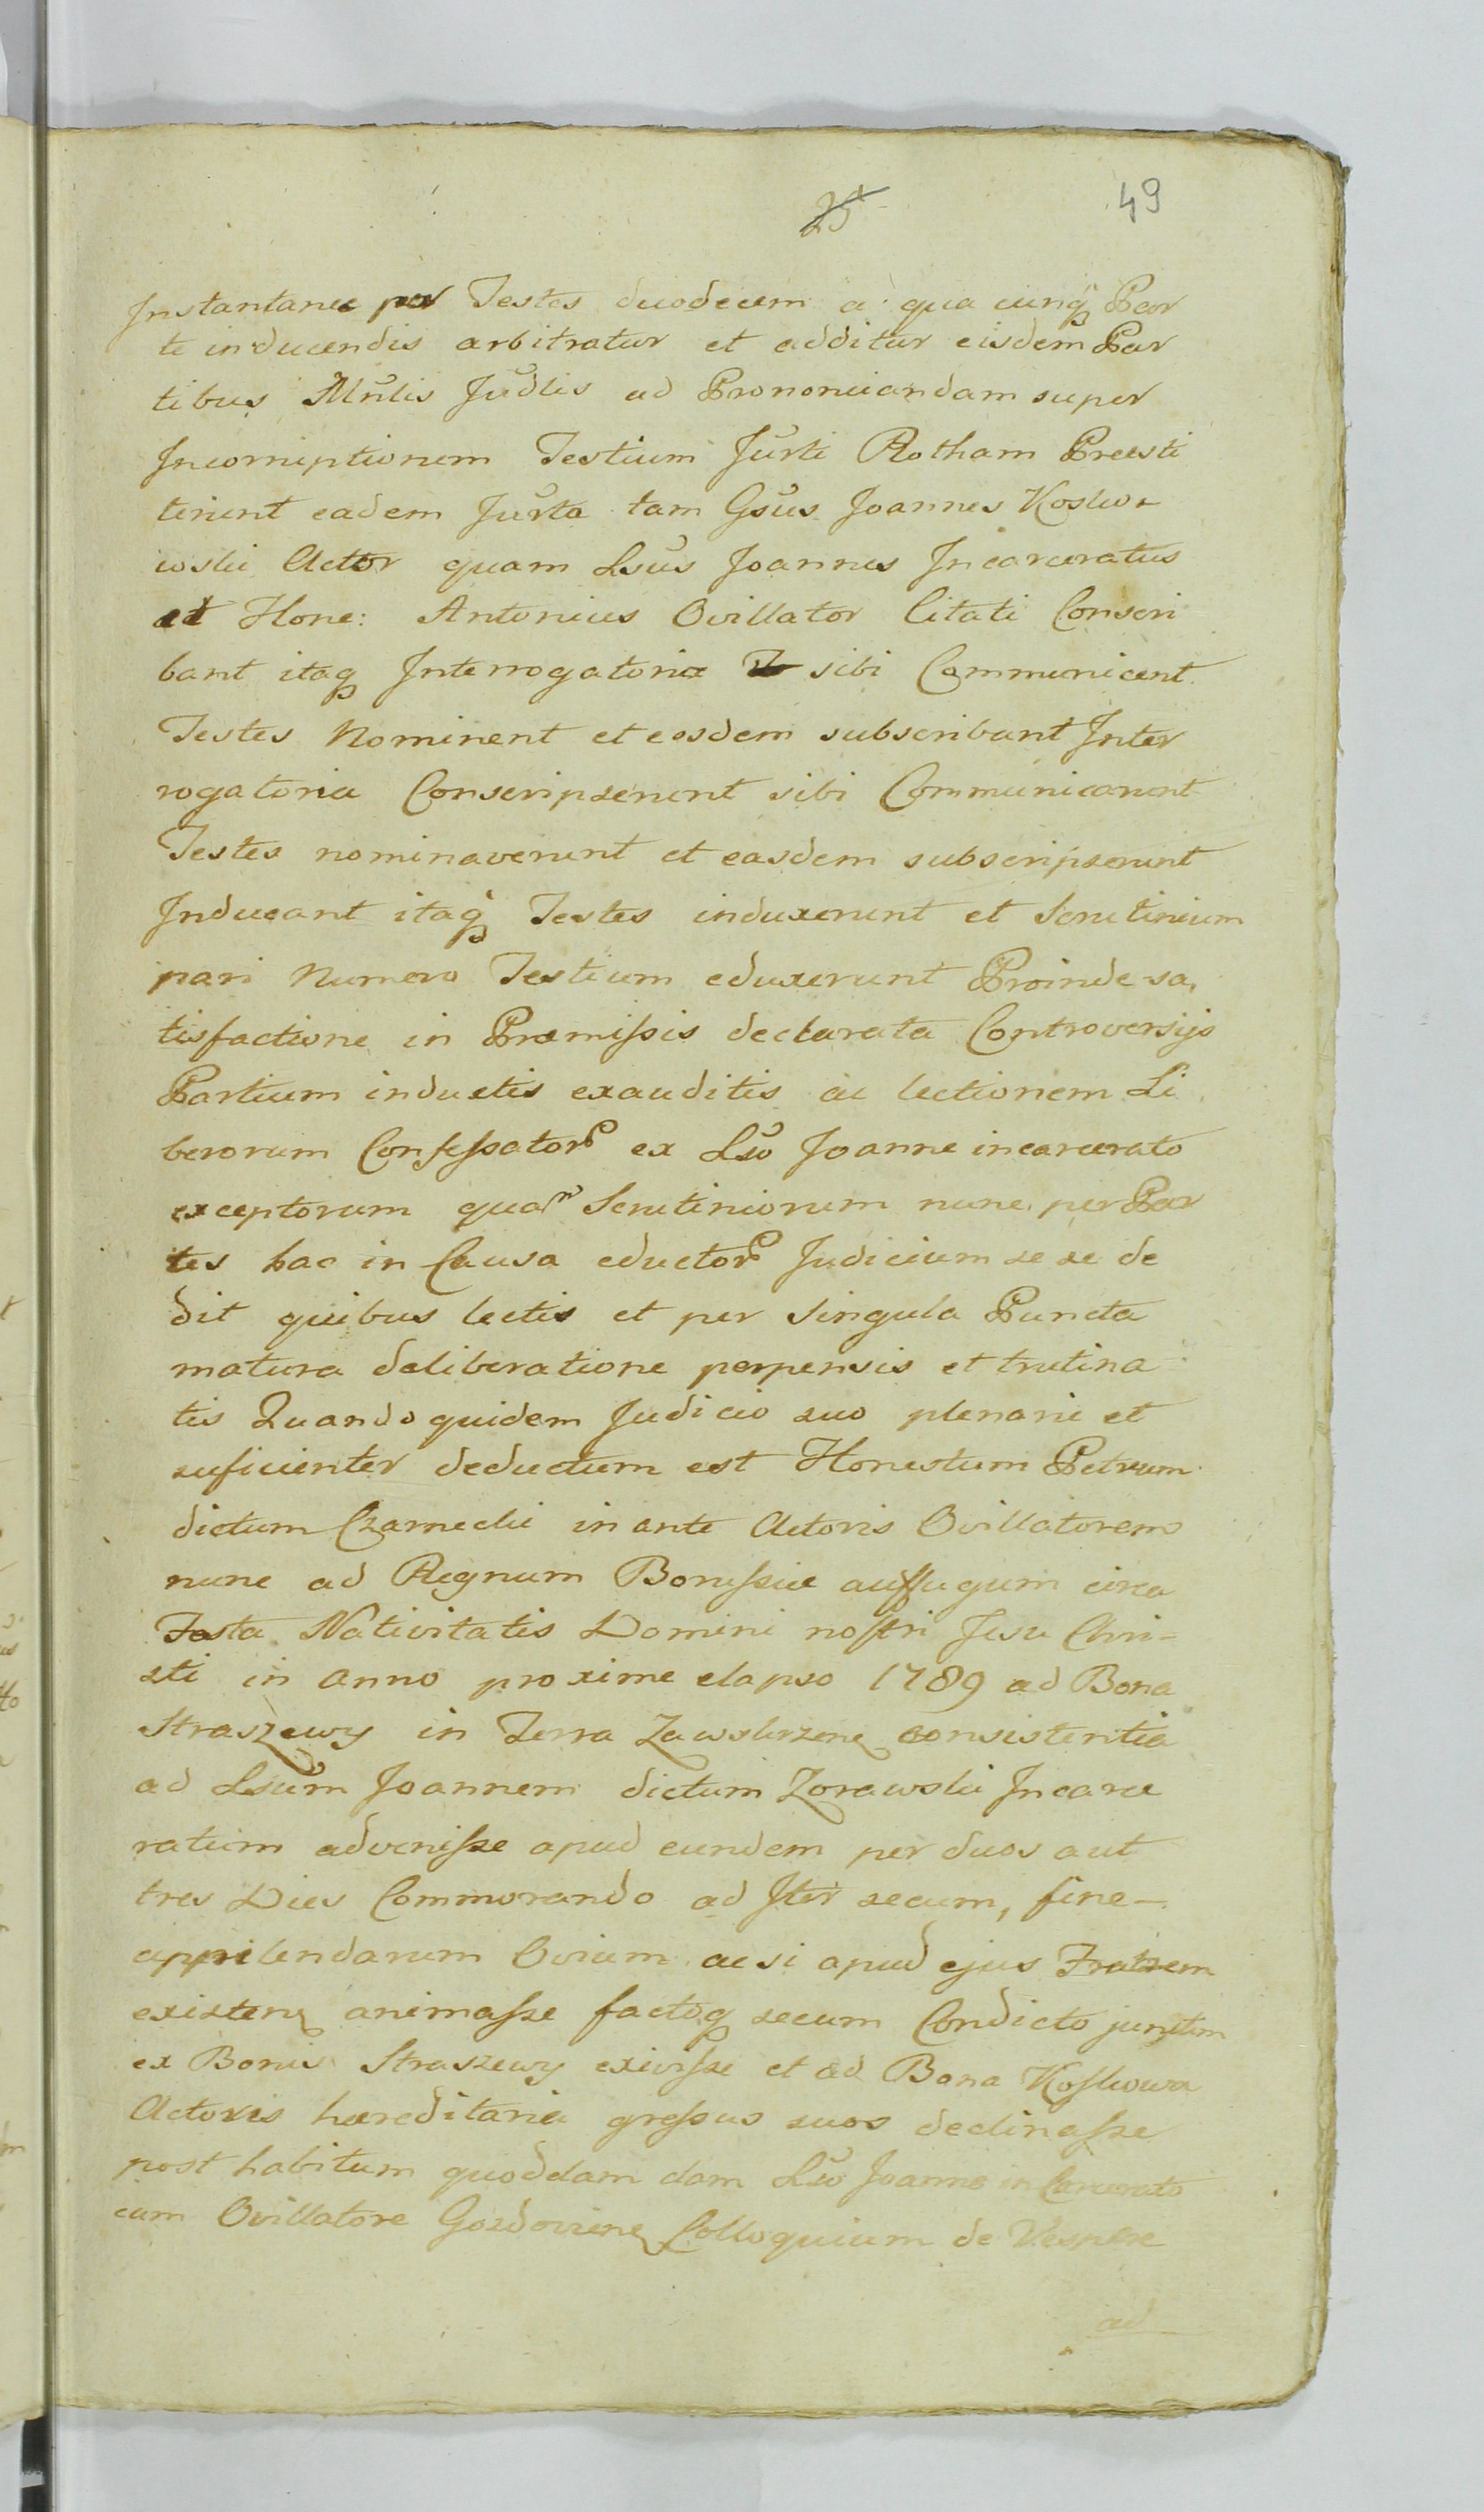 25
49
Instantanee per Testes duodecem a qua cunq Par
te inducendis arbitratur et additur eisdem Par
tibus Mnlis Judlis ad Prononciandam super
Incorruptionem Testium Jurti Rotham Preesti
terunt eadem Jurta tam Gsus Joannes Koslwo
wski Actor quam Lsus Joannes Incarceratus
et Hone: Antonius Ovillator Citati Conscri
bant itaq Interrogatoria sibi Communicent
Testes Nominent et eosdem subscribant Inter
rogatoria Conscripserunt sibi Communicarunt
Testes nominaverunt et easdem subscripserunt
Inducant itaq Testes induxerunt et Scrutinium
pari Numero Testium eduxerunt Proinde sa,
tisfactione in Præmissis declarata Controversijs
Partium inductis exauditis ac lectionem Li
berorum Confessator ex Lso Joanne incarcerato
exceptorum quam Scrutiniorum nunc per Par
tes hac in Causa eductor Judicium se se de
dit quibus lectis et per Singula Puncta
matura deliberatione perpensis et trutina
tis Quando quidem Judicio suo plenarie et
suficienter deductum est Honestum Petrum
dictum Czarnecki in ante Actoris Ovillatorem
nunc ad Regnum Borussiæ auffugum circa
Festa Nativitatis Domini nostri Jesu Chri-
sti in anno proxime elapso 1789 ad Bona
Straszewy in Terra Zawskrzen consistentia
ad Lsum Joannem dictum Zorawski Incarce
ratum advenisse apud eundem per duos aut
tres Dies Commorando ad Iter secum, fine-
apprilendarum Ovium ac si apud ejus Fratrem
existen animasse factoq secum Condicto junctim
ex Bonis Straszewy exivisse et ad Bona Koslwowa
Actoris hæreditaria gressus suos declinasse
post habitum quoddam dam Lso Joanne in Carcerato
cum Ovillatore Gozdovien Colloquium de Vespere
ad